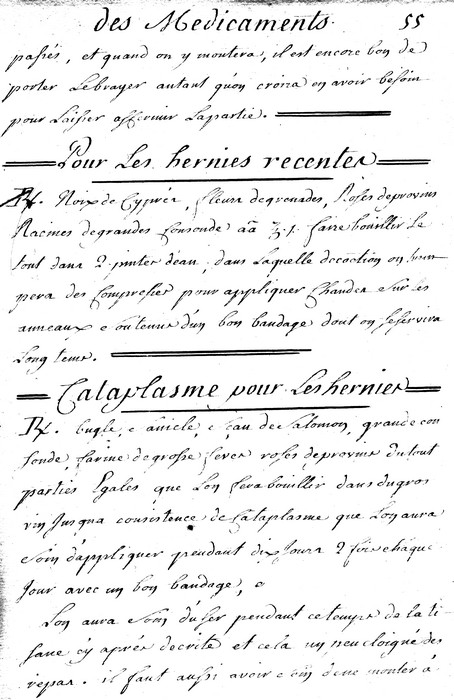 des Medicaments. 55
passés, et quand on y montera, il est encore bon de
porter Lebrayer autant qu'on croira en avoir besoin
pour Laisser affermir Lapartie.
Pour Les hernies recentes
℞. Noix de Cyprés, fleurs degrenades, Roses deprovins
Racines degrandes Consonde aã ℥.j. faire bouillir Le
tout dans 2. pintes d'eau, dans Laquelle decoction on trem
pera des Compresses pour appliquer Chaudes Sur les
anneaux e outenus d'un bon bandage dont on se servira
Long tems.
Cataplasme pour Les hernies
℞. bugle, sanicle, sçeau de Salomon, grande con
sonde, farine de grosses feves roses deprovins du tout
parties Egales que Lon fera bouillir dans du gros
vin Jusqua consistence de Cataplasme que Lon aura
Soin d'appliquer pendant dix Jours 2 fois chaque
Jour avec un bon bandage,
Lon aura Soin d'user pendant ce temps de la ti
sane cy aprés decrite et cela un peu eloigné des
repas. il faut aussi avoir soin de ne monter à